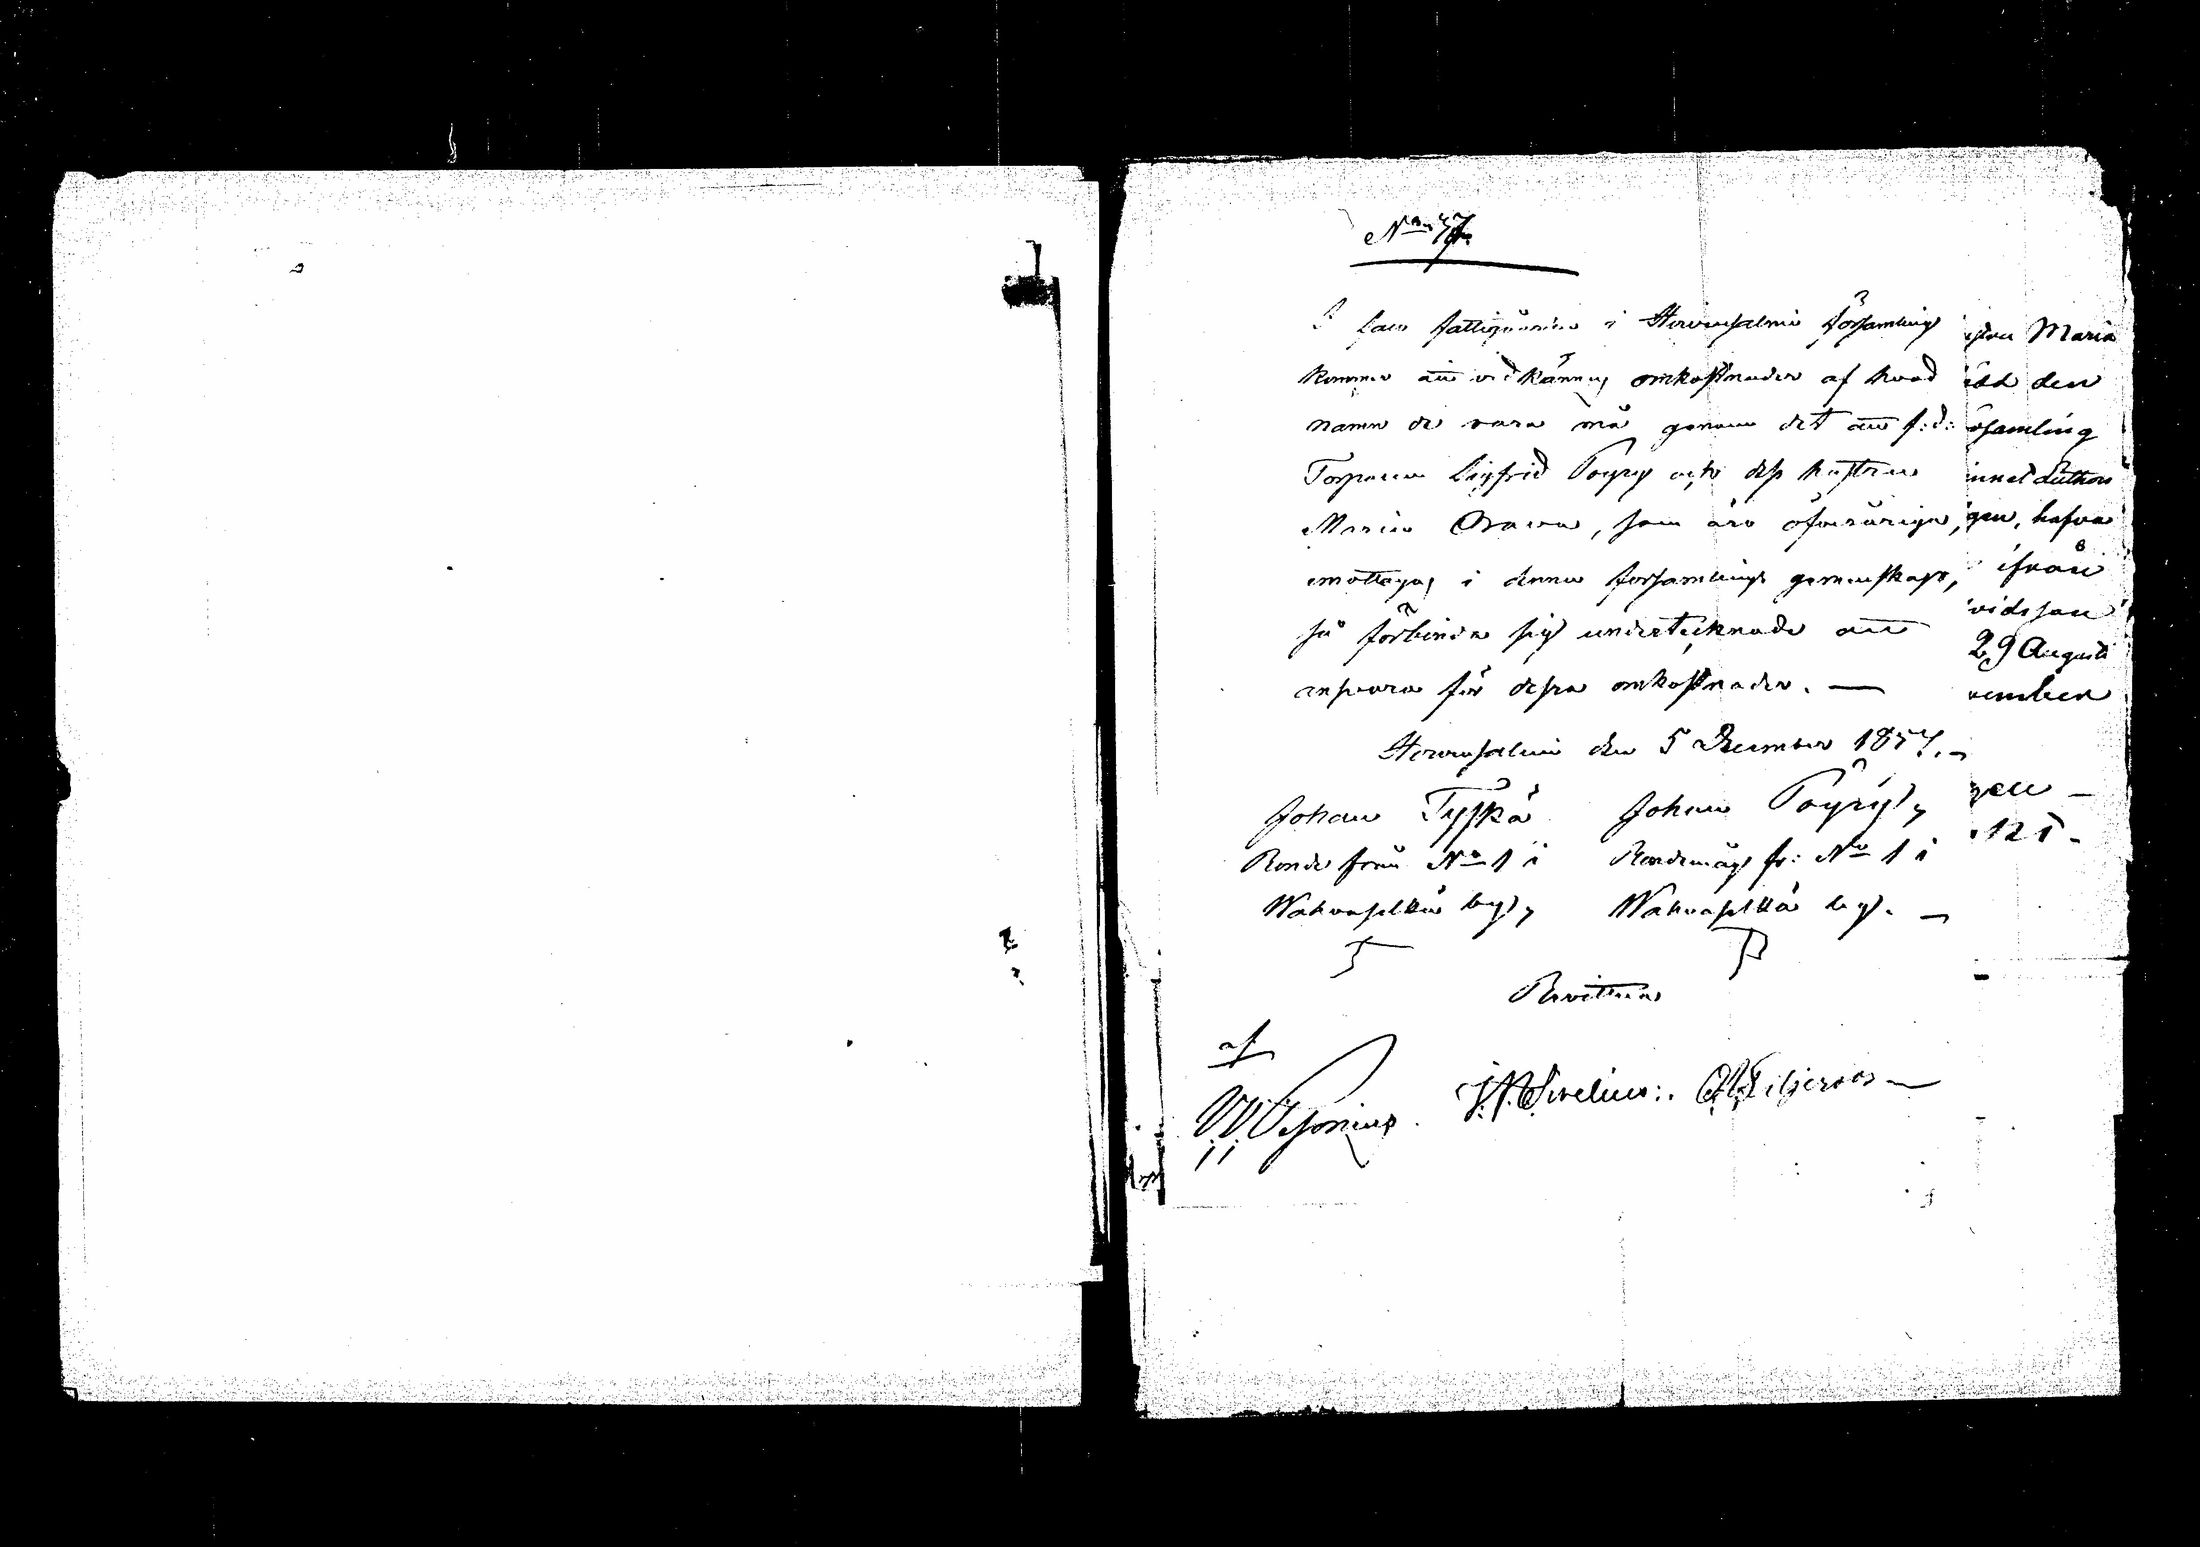 No 37.
I fall fattigvården i Hirvensalmi församling
kommer att vidkännas omkostnader af hvad
namn de vara må genom det att f: d:
Torparen Sigfrid Pöyry och dess hustru
Maria Orava, som äro ofvanåriga,
emottagas i denna församlings gemenskap,
så förbinda sig undertecknade att
ansvara för dessa omkostnader. —
Hirvensalmi den 5 December 1857. —
Johan Tyskä Johan Pöyry,
Bonde från No 1 i Bondemåg fr: No 1 i
Wahvaselkä by, Wahvaselkä by. —
Bevittna
af
Maria
den
samling
gen, hafva
ifrån
vidsson
29 Augusti
vember
gen —
121 -